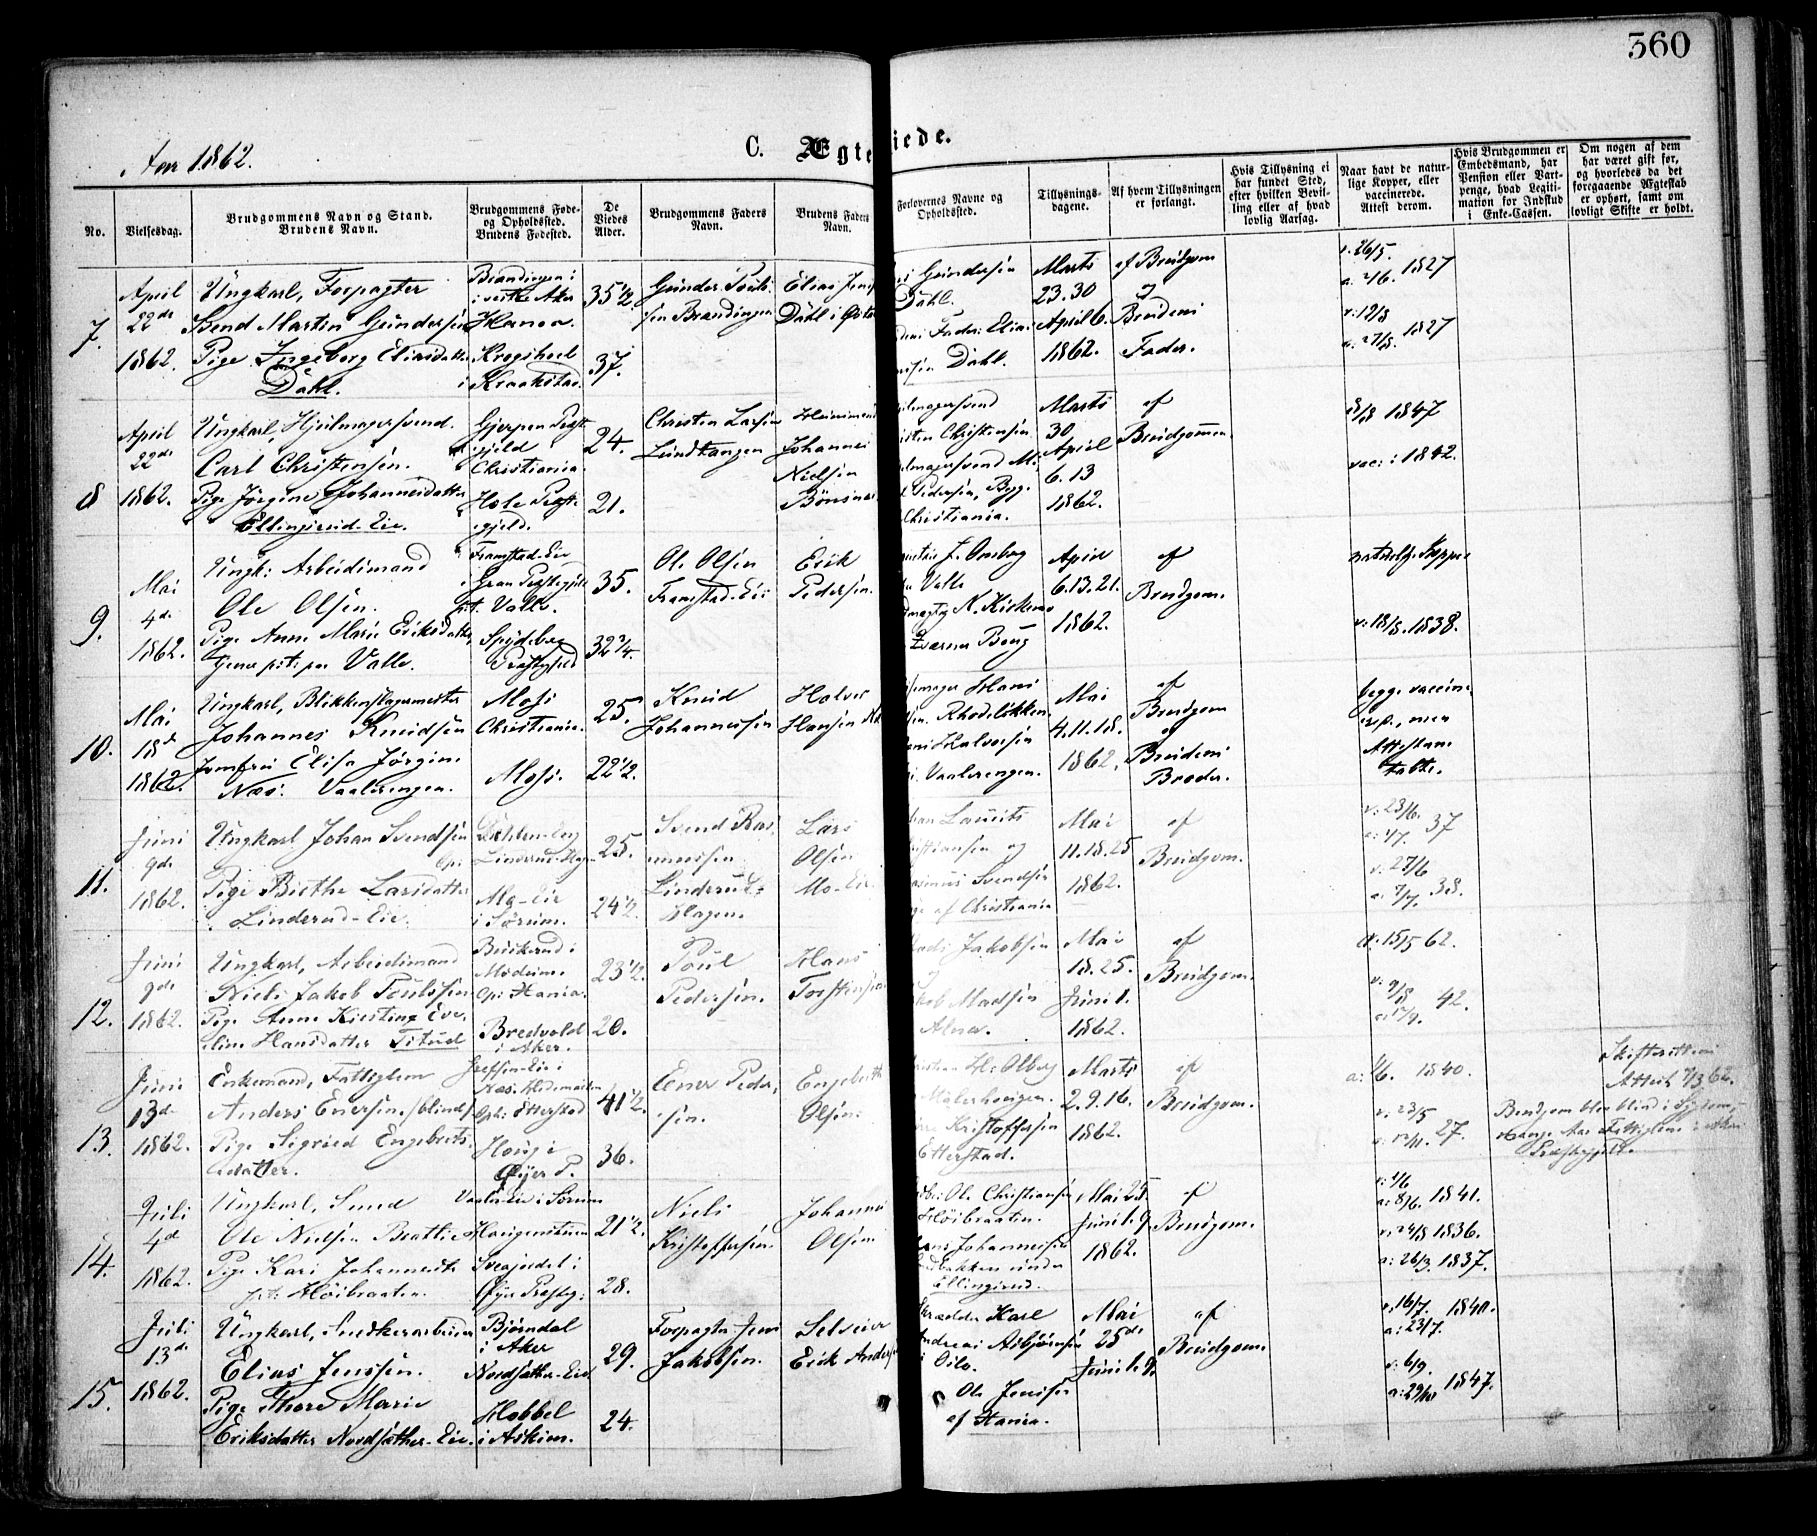 360
Aar 1862.
C. Ægteviede.
No.
Vielsesdag.
Brudgommens Navn og Stand.
Brudens Navn.
Brudgommens Føde-
og Opholdssted.
Brudens Fødested.
De
Viedes
Alder.
Brudgommens Faders
Navn.
Brudens Faders
Navn.
Forlovernes Navne og
Opholdssted.
Tillysnings-
dagene.
Af hvem Tillysningen
er forlangt.
Hvis Tillysning ei
har fundet Sted,
efter hvilken Bevil-
ling eller af hvad
lovlig Aarsag.
Naar havt de natur-
lige Kopper, eller
vaccinerede.
Attest derom.
Hvis Brudgommen er
Embedsmand, har
Pension eller Vart-
penge, hvad Legiti-
mation for Indskud
i Enke-Cassen.
Om nogen af dem
har været gift før,
og hvorledes da det
foregaaende Ægteskab
er ophørt, samt om
lovligt Skifte er holdt.
7.
April
22de
1862.
Ungkarl, Forpagter
Svend Martin Gundersen
Pige Ingeborg Eliasdatter
Dahl.
Brandingen i
vestre Aker
Krogsheel
i Kraakstad.
35 1/2
37.
Gunder
sen Brandingen
Elias Jens
Dahl i
Gundersen
Dahl.
Fader Elias
Dahl.
Marts
23.30
April 6.
1862.
af Brudgom
og
Brudens
Fader.
v. 26/5.
1827
v: 19/8
a. 27/8. 1827
8
April
22de
1862.
Ungkarl, Hjulmagersvend
Carl Christensen.
Pige Jørgine Johannesdatter
Ellingsrud-Eie.
Gjerpen Præste
gjeld
Christiania
Hole Præste
gjeld.
24.
21.
Christen Larsen
Lundtangen
Huusmand
Johannes
Nielsen
Bønsnæs
Hjulmagersvend
Christensen
Pedersen, Begge
Christiania.
Marts
30
April
6.13
1862.
af
Brudgommen.
1847
vac: i 1842.
9.
Mai
4de
1862.
Ungk: Arbeidsmand
Ole Olsen.
Pige Anne Marie Eriksdatter
Valle.
Framstad-Eie
i Gran Præstegjeld
Valle.
Spydeberg
Præstegjeld
35.
32 3/4.
Ole Olsen
Framstad-Eie
Erik
Pedersen.
Valle
April
6.13.21.
1862.
af
Brudgom.
naturlige Kopper
v: 18/8. 1838.
10.
Mai
18d
1862.
Ungkarl, Blikkenslagermester
Johannes Knudsen
Jomfru Elisa Jørgine
Næs. Vaalerengen.
Moss
Christiania.
Moss.
25.
22 1/2.
Knud
Johannessen
Halvor
Hansen
Hans
Rhodeløkken
Halvorsen
Vaalerengen.
Mai
4.11.18.
1862.
af
Brudgom
og
Brudens
Broder.
begge vaccine
resp., men
Attesten
tabte.
11.
Juni
9de
1862.
Ungkarl Johan Svendsen
Pige Birthe Larsdatter
Linderud-Eie.
Linderud-Hagen
Mo-Eie
i Sørum.
25.
24 1/2.
Svend Ras
mussen
Linderud-
Hagen.
Lars
Olsen
Mo-Eie.
Johan Laurits
Christiansen og
Rasmus Svendsen
Begge af Christiania
Mai
11.18.25
1862.
af
Brudgom.
v: 23/6. 37
v. 27/6
a. 7/7. 38.
12.
Juni
9de
1862.
Ungkarl, Arbeidsmand
Niels Jakob Poulssen
Pige Anne Kirstine Eve
line Hansdatter Titrud
Buskerud i
Modum.
Bredvold
i Aker.
23 1/2.
20.
Poul
Pedersen.
Hans
Torstensen
Jakobsen
Jakob Madsen
Alna.
Mai
18.25.
Juni 1.
1862.
af
Brudgom.
a: 15/5 62.
v. 9/8
42.
13.
Juni
13de
1862.
Enkemand, Fattiglem
Anders Enersen. (blind)
Pige Sigried Engebrets-
datter.
Næs. Hedemarken
Oph: Etterstad
Houg i
Øyer P.
41 1/2.
36.
Ener Peder,
sen.
Engebreth
Olsen.
Christian H: Olberg
Malerhougen.
Kristoffersen
Etterstad.
Marts
2.9.16.
1862.
af
Brudgom.
1840.
v. 23/5
27.
Skifterettens
Attest 7/3 62.
Brudgom blev blind i
Præstegjeld.
14.
Juli
4d
1862.
Ungkarl, Smed
Ole Nielsen Bratlie
Pige Kari Johannesd:
Høibraaten.
Vaaler-Eie i Sørum
Haugenstuen
Sveasjordet i
Øyer Præsteg:
21 1/2.
28.
Niels
Kristoffersen.
Johannes
Olsen
Ole Christiansen
Høibraaten.
Hans Johannessen
under
Ellingsrud.
Mai 25.
Juni 1.9.
1862.
af
Brudgom.
a: 8/6. 1841.
v. 24/8 1836.
a: 26/3. 1837.
15.
Juli
13de
1862.
Ungkarl, Snedkerarbeider
Elias Jenssen.
Pige Thore Marie
Eriksdatter Nordsæther-Eie.
Bjørndal
i Aker
Nordsæther-Eie.
Hobbel
i Askim.
29.
24.
Forpagter Jens
Jakobsen.
Selveier
Erik Anders
Skrædder Karl
Andreas Asbjørnsen
i Oslo.
Ole Jenssen
af Xania.
Mai
25de
Juni 1.9.
af
Brudgom.
v. 16/7. 1840.
a: 23/7.
v: 6/9.
a: 29/10 1847.